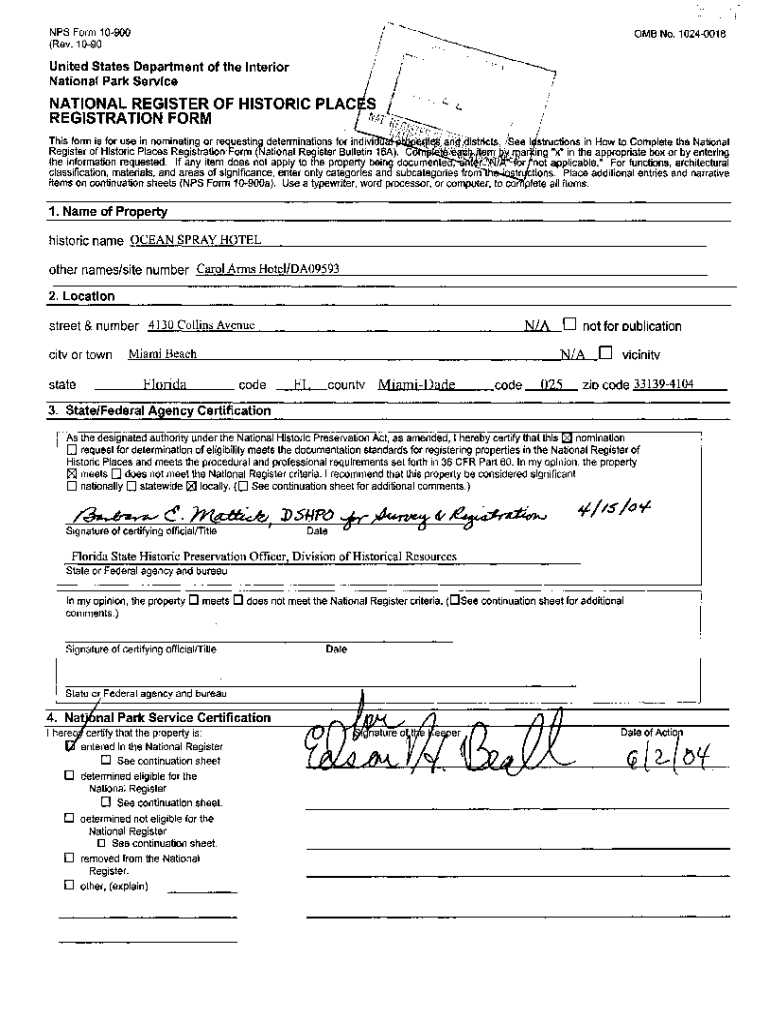 NPS Form 10-900
(Rev. 10-90
OMB No. 1024-0018
United States Department of the Interior
National Park Service
NATIONAL REGISTER OF HISTORIC PLACES
REGISTRATION FORM
This form is for use in nominating or requesting determinations for individual properties and districts. See instructions in How to Complete the National
Register of Historic Places Registration Form (National Register Bulletin 16A). Complete each item by marking "x" in the appropriate box or by entering
the information requested. If any item does not apply to the property being documented, enter "N/A" for "not applicable." For functions, architectural
classification, materials, and areas of significance, enter only categories and subcategories from the instructions. Place additional entries and narrative
items on continuation sheets (NPS Form 10-900a). Use a typewriter, word processor, or computer, to complete all items.
1. Name of Property
historic name OCEAN SPRAY HOTEL
other names/site number Carol Arms Hotel/DA09593
2. Location
street & number 4130 Collins Avenue N/A ☐ not for publication
city or town Miami Beach N/A ☐ vicinity
state Florida code FL county Miami-Dade code 025 zip code 33139-4104
3. State/Federal Agency Certification
As the designated authority under the National Historic Preservation Act, as amended, I hereby certify that this ☒ nomination
☐ request for determination of eligibility meets the documentation standards for registering properties in the National Register of
Historic Places and meets the procedural and professional requirements set forth in 36 CFR Part 60. In my opinion, the property
☒ meets ☐ does not meet the National Register criteria. I recommend that this property be considered significant
☐ nationally ☐ statewide ☒ locally. (☐ See continuation sheet for additional comments.)
Barbara C. Mattick, DSHPO for Survey & Registration 4/15/04
Signature of certifying official/Title Date
Florida State Historic Preservation Officer, Division of Historical Resources
State or Federal agency and bureau
In my opinion, the property ☐ meets ☐ does not meet the National Register criteria. (☐See continuation sheet for additional
comments.)
Signature of certifying official/Title Date
State or Federal agency and bureau
4. National Park Service Certification
I hereby certify that the property is: Signature of the Keeper Date of Action
☑ entered in the National Register for Edson H. Beall 6/2/04
☐ See continuation sheet
☐ determined eligible for the
National Register
☐ See continuation sheet.
☐ determined not eligible for the
National Register
☐ See continuation sheet.
☐ removed from the National
Register.
☐ other, (explain)